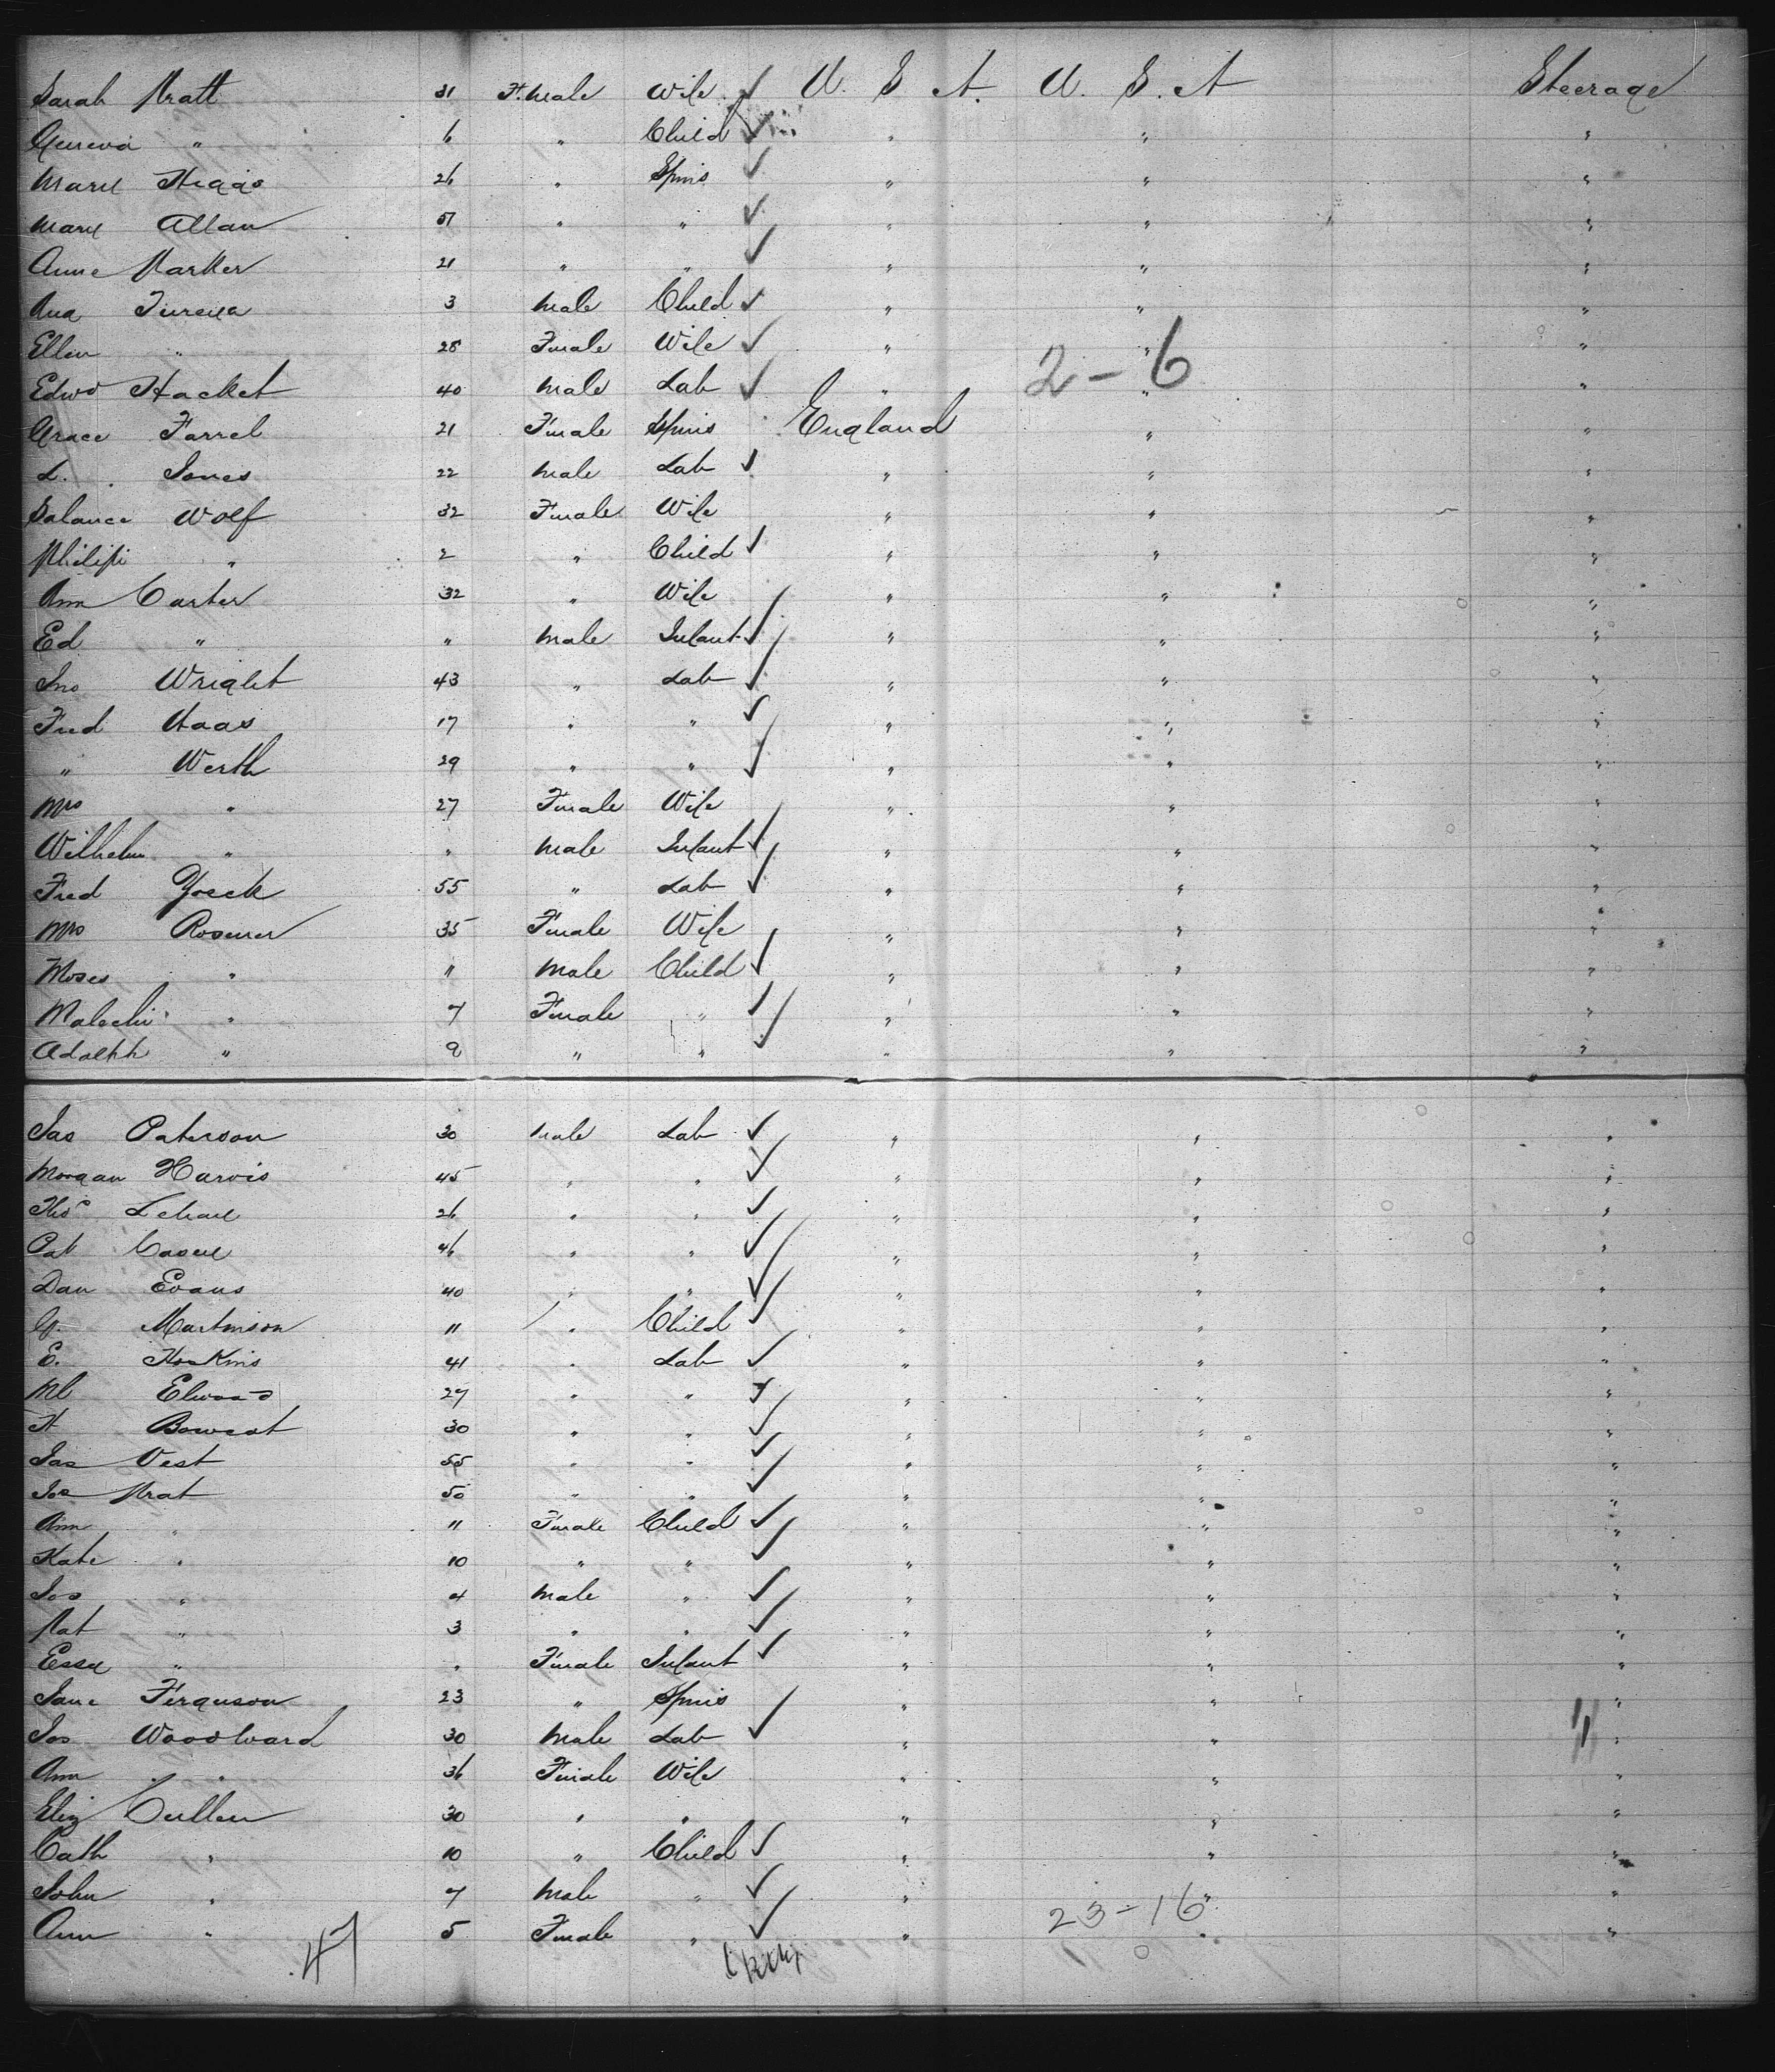 Sarah Pratt 31 F.male Wife U. S. A. U. S. A Steerage
Geneva " 6 " Child " " "
Mary Higgs 26 " Spins " " "
Mary Allan 51 " " " " "
Anne Parker 21 " " " " "
3 Male Child " " "
Ellen " 28 Female Wife " " "
Edwd Hacket 40 Male Lab " " "
2 - 6
Grace Farrel 21 Female Spins England " "
L. Jones 22 Male Lab " " "
Wolf 32 Female Wife " " "
Philip " 2 " Child " " "
Ann Carter 32 " Wife " " "
Ed " " Male Infant " " "
Jno Wright 43 " Lab " " "
Fred Haas 17 " " " " "
" Werth 29 " " " " "
Mrs " 27 Female Wife " " "
Wilhelm " " Male Infant " " "
Fred Yoeck 55 " Lab " " "
Mrs Rosener 35 Female Wife " " "
Moses " " Male Child " " "
Malechi " 7 Female " " " "
Adolph " 9 " " " " "
Jas Paterson 30 Male Lab " " "
Morgan Harvis 45 " " " " "
Thos Lehane 26 " " " " "
Pat Casey 46 " " " " "
Dan Evans 40 " " " " "
G. Martinson 11 " Child " " "
E. Hoskins 41 " Lab " " "
Ml Elwood 27 " " " " "
H Bowcot 30 " " " " "
Jas Vest 55 " " " " "
Jos Prat 50 " " " " "
Ann " 11 Female Child " " "
Kate " 10 " " " " "
Jos " 4 Male " " " "
Pat " 3 " " " " "
Essy " " Female Infant " " "
Jane Ferguson 23 " Spins " " "
Jos Woodward 30 Male Lab " " "
Ann " 36 Female Wife " " "
Eliz Cullen 30 " " " " "
Cath " 10 " Child " " "
John " 7 Male " " " "
Ann " 5 Female " " " "
23-16
47